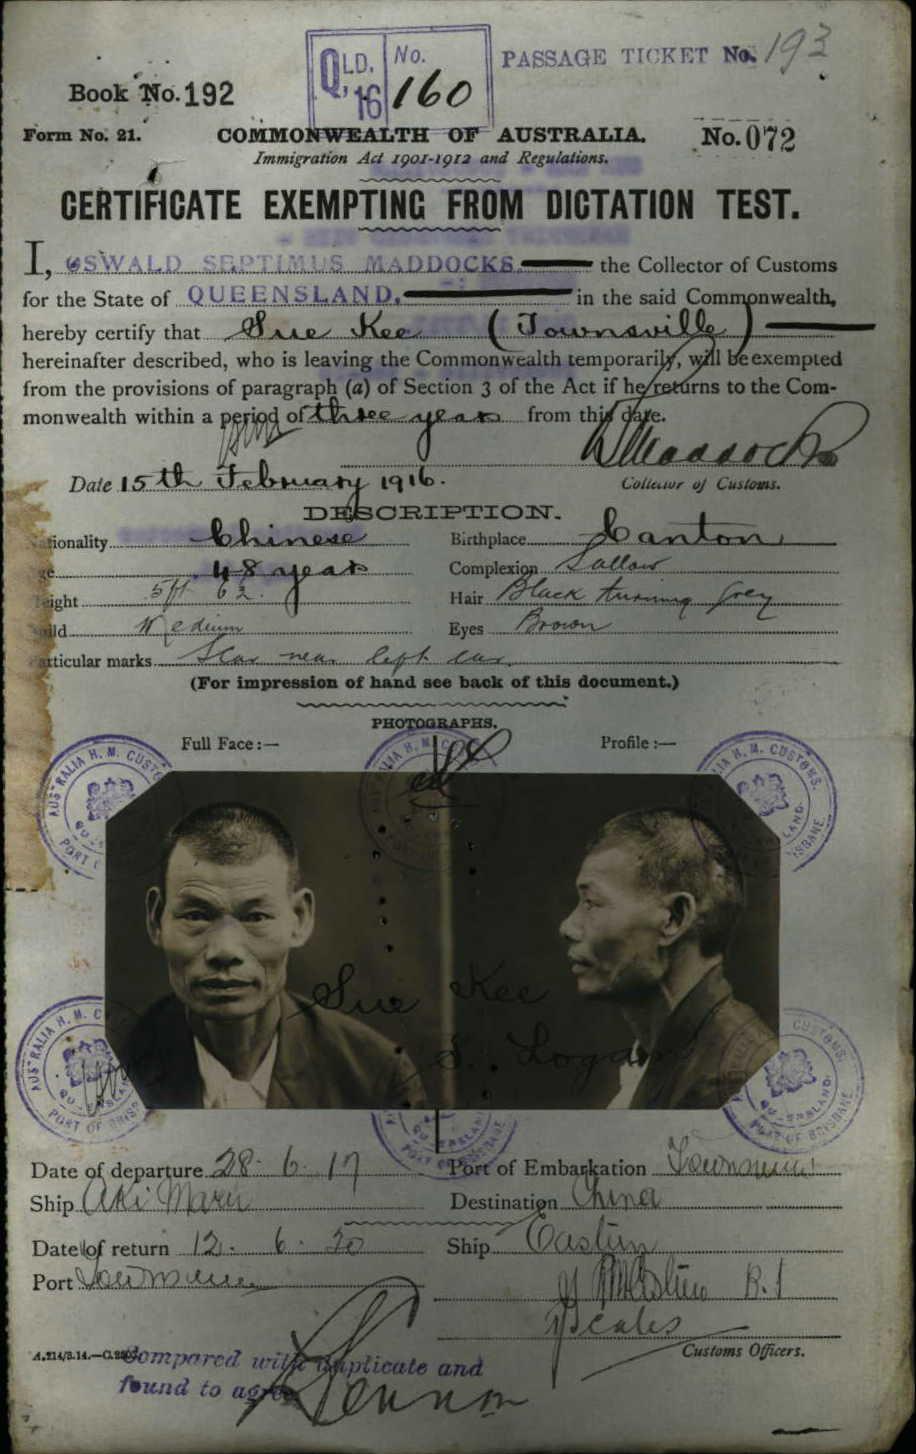 QLD. 16 No. 160
PASSAGE TICKET No. 193
Book No. 192
Form No. 21. COMMONWEALTH OF AUSTRALIA. No. 072
Immigration Act 1901-1912 and Regulations.
CERTIFICATE EXEMPTING FROM DICTATION TEST.
I, OSWALD SEPTIMUS MADDOCKS. the Collector of Customs
for the State of QUEENSLAND. in the said Commonwealth,
hereby certify that Sue Kee (Townsville)
hereinafter described, who is leaving the Commonwealth temporarily, will be exempted
from the provisions of paragraph (a) of Section 3 of the Act if he returns to the Com-
monwealth within a period of three years from this date.
Maddocks
Date 15th February 1916. Collector of Customs.
DESCRIPTION.
ationality Chinese Birthplace Canton
ge 48 years Complexion Sallow
eight 5ft 6½. Hair Black turning Grey
ild Medium Eyes Brown
articular marks Scar near left ear.
(For impression of hand see back of this document.)
PHOTOGRAPHS.
Full Face:— Profile:—
AUSTRALIA H. M. CUSTOMS. QUEENSLAND PORT OF BRISBANE
Sue Kee
S. Logan
Date of departure 28. 6. 17 Port of Embarkation Townsville
Ship Aki Maru Destination China
Date of return 12. 6. 20 Ship Eastern
Port Townsville
Customs Officers.
Compared with duplicate and
found to agree